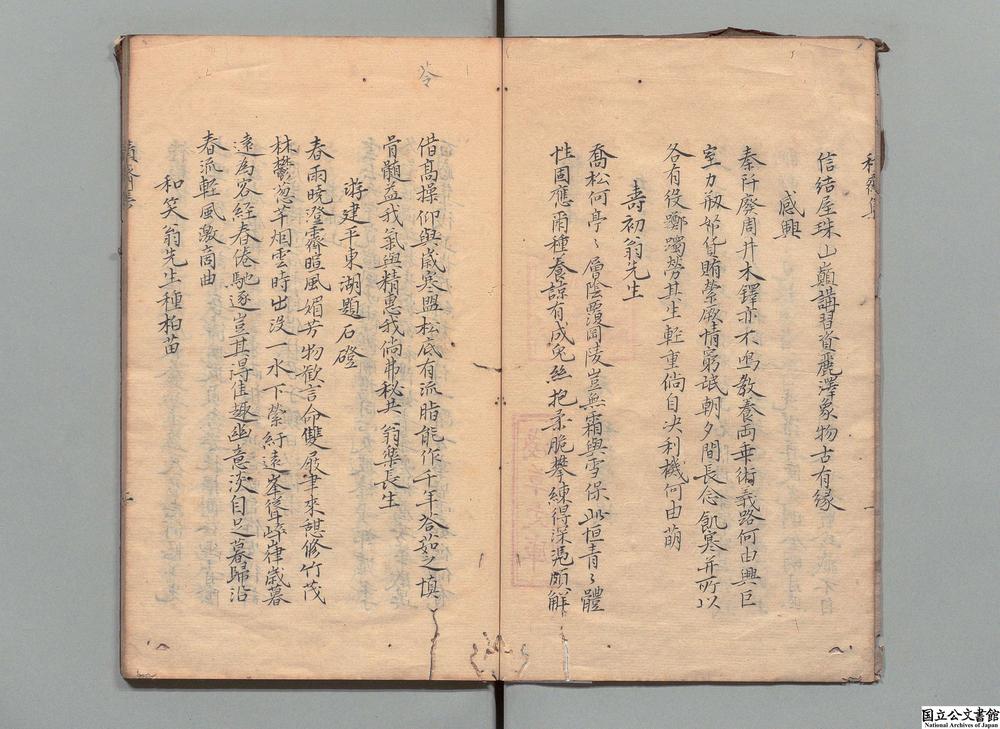 信結屋珠山巔講習資麗澤象物古有縁
感興
秦阡廢周井木鐸亦不鳴教養両乖術義路何由興巨
室力刱幣貨賄縈厥情窮氓朝夕間長念飢寒并所以
各有役躑躅勞其生軽重倘自决利機何由萌
壽初翁先生
喬松何亭〻層陰覆岡陵豈無霜與雪保此恒青〻體
性固應爾種養諒有成兔絲抱柔脆攀練得深憑頗解
借髙操仰與歳寒盟松底有流脂能作千年苓茹之填
骨髓益我氣與精惠我倘弗秘共翁樂長生
游建平東湖題石磴
春雨曉澄霽暄風媚芳物歡言命雙屐聿來憩修竹茂
林鬱葱芊烟雲時出没一水下縈紆遠峯後崒嵂歳暮
遠為客經春倦馳逐豈其得佳趣幽意淡自足暮歸沿
春流軽風激商曲
和笑翁先生種柏苗
苓
国立公文書館
National Archives of Japan